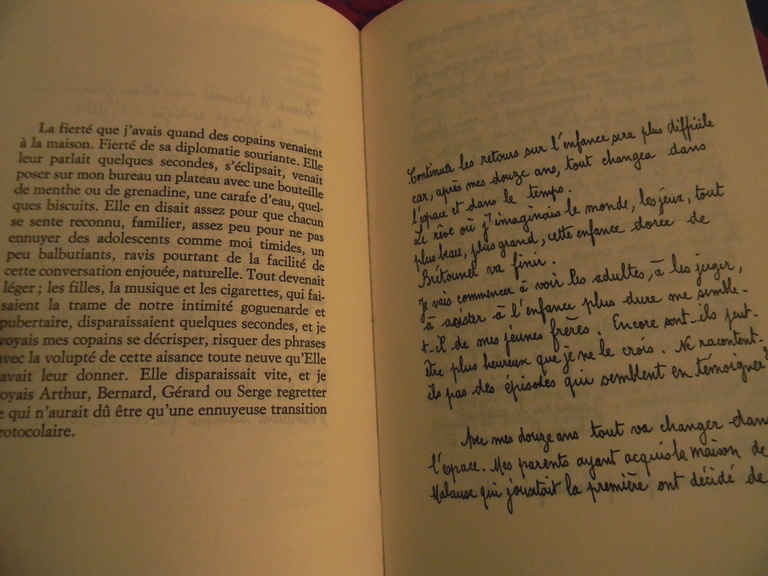 La fierté que j'avais quand des copains venaient
à la maison. Fierté de sa diplomatie souriante. Elle
leur parlait quelques secondes, s'éclipsait, venait
poser sur mon bureau un plateau avec une bouteille
de menthe ou de grenadine, une carafe d'eau, quel-
ques biscuits. Elle en disait assez pour que chacun
se sente reconnu, familier, assez peu pour ne pas
ennuyer des adolescents comme moi timides, un
peu balbutiants, ravis pourtant de la facilité de
cette conversation enjouée, naturelle. Tout devenait
léger ; les filles, la musique et les cigarettes, qui fai-
saient la trame de notre intimité goguenarde et
pubertaire, disparaissaient quelques secondes, et je
voyais mes copains se décrisper, risquer des phrases
avec la volupté de cette aisance toute neuve qu'Elle
avait leur donner. Elle disparaissait vite, et je
oyais Arthur, Bernard, Gérard ou Serge regretter
e qui n'aurait dû être qu'une ennuyeuse transition
rotocolaire.
Continuer les retours sur l'enfance sera plus difficile
car, après mes douze ans, tout changea dans
l'espace et dans le temps.
Le rêve où j'imaginais le monde, les jeux, tout
plus beau, plus grand, cette enfance dorée de
Bretounel va finir.
Je vais commencer à voir les adultes, à les juger,
à assister à l'enfance plus dure me semble-
t-il de mes jeunes frères. Encore sont-ils peut-
être plus heureux que je ne le crois. Ne racontent-
ils pas des épisodes qui semblent en témoigner?
Avec mes douze ans tout va changer dans
l'espace. Mes parents ayant acquis la maison de
Malause qui jouxtait la première ont décidé de